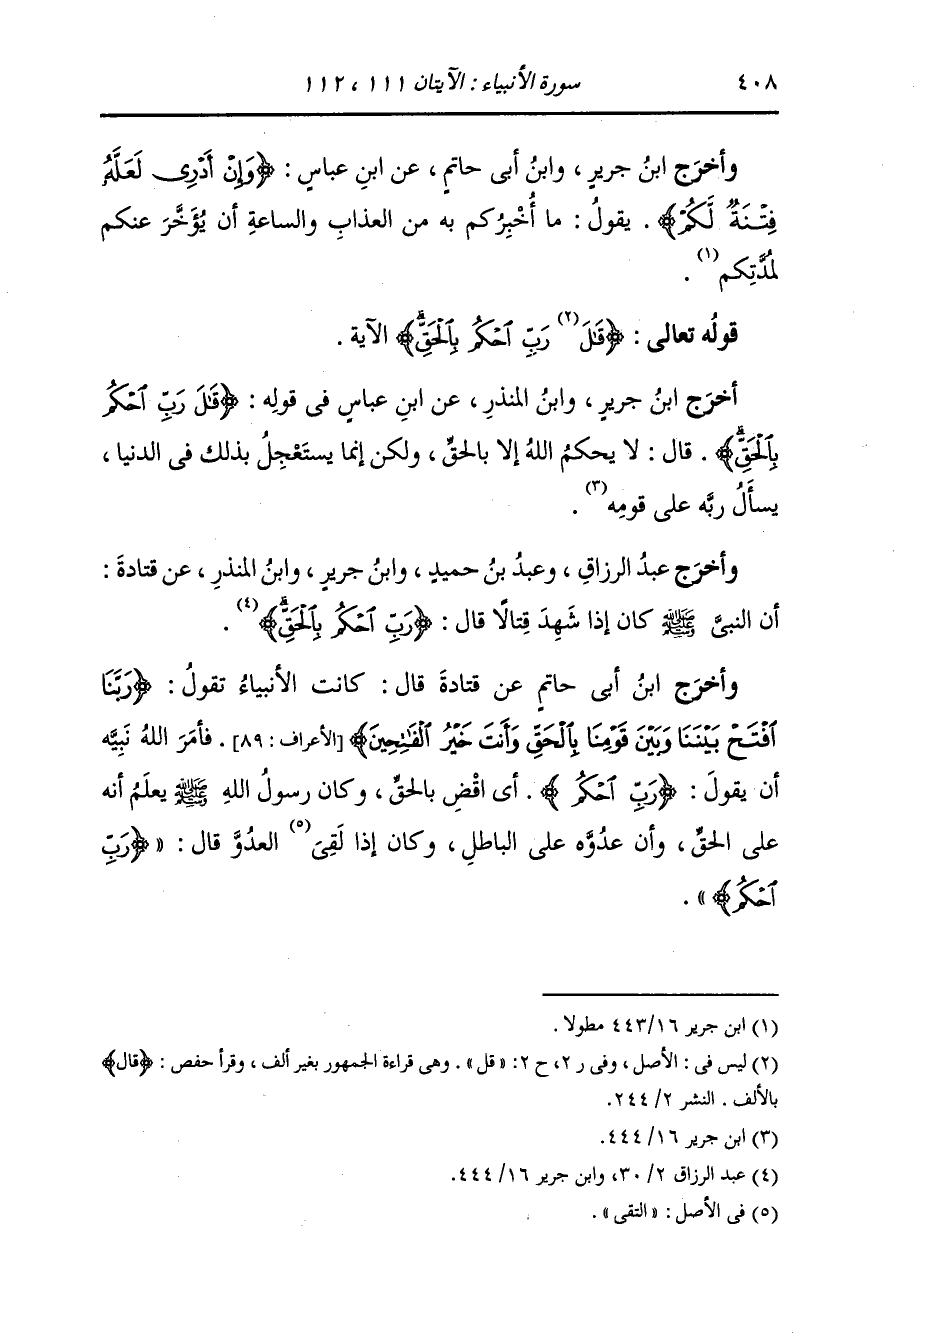 ٤٠٨ سورة الأنبياء : الآيتان ١١١ ، ١١٢
وأخرَج ابنُ جريرٍ ، وابنُ أبى حاتمٍ ، عن ابنِ عباسٍ : ﴿وَإِنْ أَدْرِى لَعَلَّهُ
فِتْنَةٌ لَّكُمْ﴾ . يقولُ : ما أُخْبِرُكم به من العذابِ والساعةِ أن يُؤَخَّرَ عنكم
لمُدَّتِكم(١) .
قولُه تعالى : ﴿قَٰلَ(٢) رَبِّ ٱحْكُم بِٱلْحَقِّۗ﴾ الآية .
أخرَج ابنُ جريرٍ ، وابنُ المنذرِ ، عن ابنِ عباسٍ فى قولِه : ﴿قَٰلَ رَبِّ ٱحْكُم
بِٱلْحَقِّۗ﴾ . قال : لا يحكمُ اللهُ إلا بالحقِّ ، ولكن إنما يستَعْجِلُ بذلك فى الدنيا ،
يسأَلُ ربَّه على قومِه(٣) .
وأخرَج عبدُ الرزاقِ ، وعبدُ بنُ حميدٍ ، وابنُ جريرٍ ، وابنُ المنذرِ ، عن قتادةَ :
أن النبىَّ ﷺ كان إذا شَهِدَ قِتالًا قال : ﴿رَبِّ ٱحْكُم بِٱلْحَقِّۗ﴾(٤) .
وأخرَج ابنُ أبى حاتمٍ عن قتادةَ قال : كانت الأنبياءُ تقولُ : ﴿رَبَّنَا
ٱفْتَحْ بَيْنَنَا وَبَيْنَ قَوْمِنَا بِٱلْحَقِّ وَأَنتَ خَيْرُ ٱلْفَٰتِحِينَ﴾ [الأعراف : ٨٩] . فأمَرَ اللهُ نَبِيَّه
أن يقولَ : ﴿رَبِّ ٱحْكُم ﴾ . أى اقْضِ بالحقِّ ، وكان رسولُ اللهِ ﷺ يعلَمُ أنه
على الحقِّ ، وأن عدُوَّه على الباطلِ ، وكان إذا لَقِىَ(٥) العدُوَّ قال : « ﴿رَبِّ
ٱحْكُم﴾ » .
(١) ابن جرير ١٦/ ٤٤٣ مطولا .
(٢) ليس فى : الأصل ، وفى ر ٢، ح ٢: « قل » . وهى قراءة الجمهور بغير ألف ، وقرأ حفص : ﴿قال﴾
بالألف . النشر ٢/ ٢٤٤.
(٣) ابن جرير ١٦/ ٤٤٤.
(٤) عبد الرزاق ٢/ ٣٠، وابن جرير ١٦/ ٤٤٤.
(٥) فى الأصل : « التقى » .